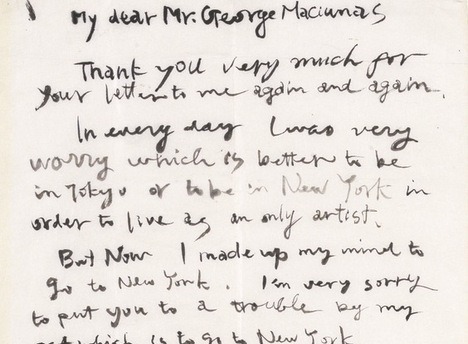 My dear Mr. George Maciunas
Thank you very much for
your letter to me again and again.
In every day I was very
worry which is better to be
in Tokyo or to be in New York in
order to live as an only artist.
But Now I made up my mind to
go to New York. I'm very sorry
to put you to a trouble by my
which is to go to New York